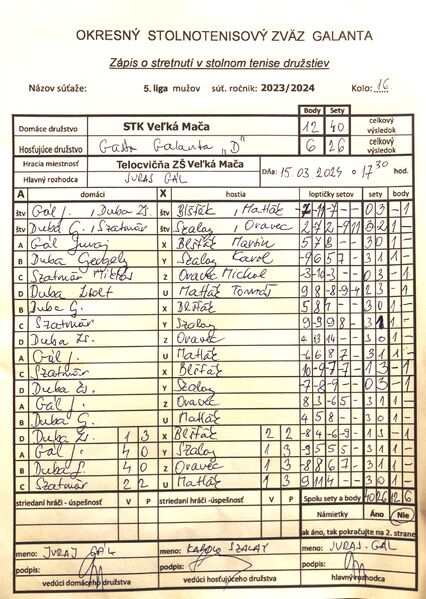 OKRESNÝ STOLNOTENISOVÝ ZVÄZ GALANTA
Zápis o stretnutí v stolnom tenise družstiev
Názov súťaže: 5. liga mužov súť. ročník: 2023/2024 Kolo: 16
Body Sety
Domáce družstvo STK Veľká Mača 12 40 celkový výsledok
Hosťujúce družstvo Galanta "D" 6 26 celkový výsledok
Hracia miestnosť Telocvičňa ZŠ Veľká Mača Dňa: 15.03 2024 o 17 30 hod.
Hlavný rozhodca JURAJ GÁL
A domáci X hostia loptičky setov sety body
štv Gál J. , Duba Zs. štv Blšták , Matlák 0 3 - 1
štv Duba G. , Szatmár štv Szalay , Oravec
A Gál Juraj X Blšták Martin 5 7 8 - - 3 0 1 -
B Duba Gergely Y Szalay Karol -9 6 5 7 - 3 1 1 -
C Szatmár Z Oravec Michal -3 -10 -3 - - 0 3 - 1
D Duba Zsolt U Matlák Tomáš 9 8 -8 -9 4 2 3 - 1
B Duba G. X Blšták 5 8 - - 3 0 1 -
C Szatmár Y Szalay 9 -3 9 8 - 3 1 1 -
D Duba Zs. Z Oravec 4 13 14 - - 3 0 1 -
A Gál J. U Matlák -6 6 8 7 - 3 1 1 -
C Szatmár X Blšták 10 -9 -7 -7 - 1 3 - 1
D Duba Zs. Y Szalay -7 -8 -9 - - 0 3 - 1
A Gál J. Z Oravec 8 3 -6 5 - 3 1 1 -
B Duba G. U Matlák 4 5 8 - - 3 0 1 -
D Duba Z. 1 3 X Blšták 2 2 -8 4 -6 -9 - 1 3 - 1
A Gál J. 4 0 Y Szalay 1 3 3 1 1 -
B Duba 4 0 Z Oravec 1 3 -8 8 6 7 - 3 1 1 -
C Szatmár 2 2 U Matlák 1 3 9 11 4 - - 3 0 1 -
striedaní hráči - úspešnosť V P striedaní hráči - úspešnosť V P Spolu sety a body 40 26 12 6
Námietky Áno Nie
ak áno, tak pokračujte na 2. strane
meno: JURAJ GÁL meno: KAROL SZALAY meno: JURAJ GÁL
podpis: podpis: podpis:
vedúci domáceho družstva vedúci hosťujúceho družstva hlavný rozhodca